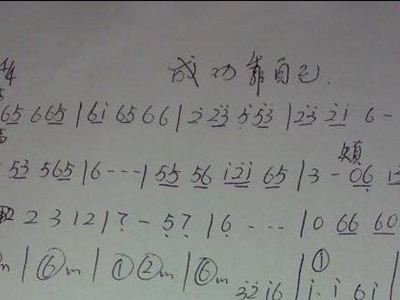 4/4
成功靠自己.
65 665 | 61 65 66 | 2 23 5 53 | 23 21 6 -
53 565 | 6 - - - | 55 56 121 65 | 3 - 06
2 2 3 12 | 7 - 57 | 6 - - - | 0 66 60
m | ⑥m | ① ②m | ⑥m | ① |
3216 | 1· 1 61 |